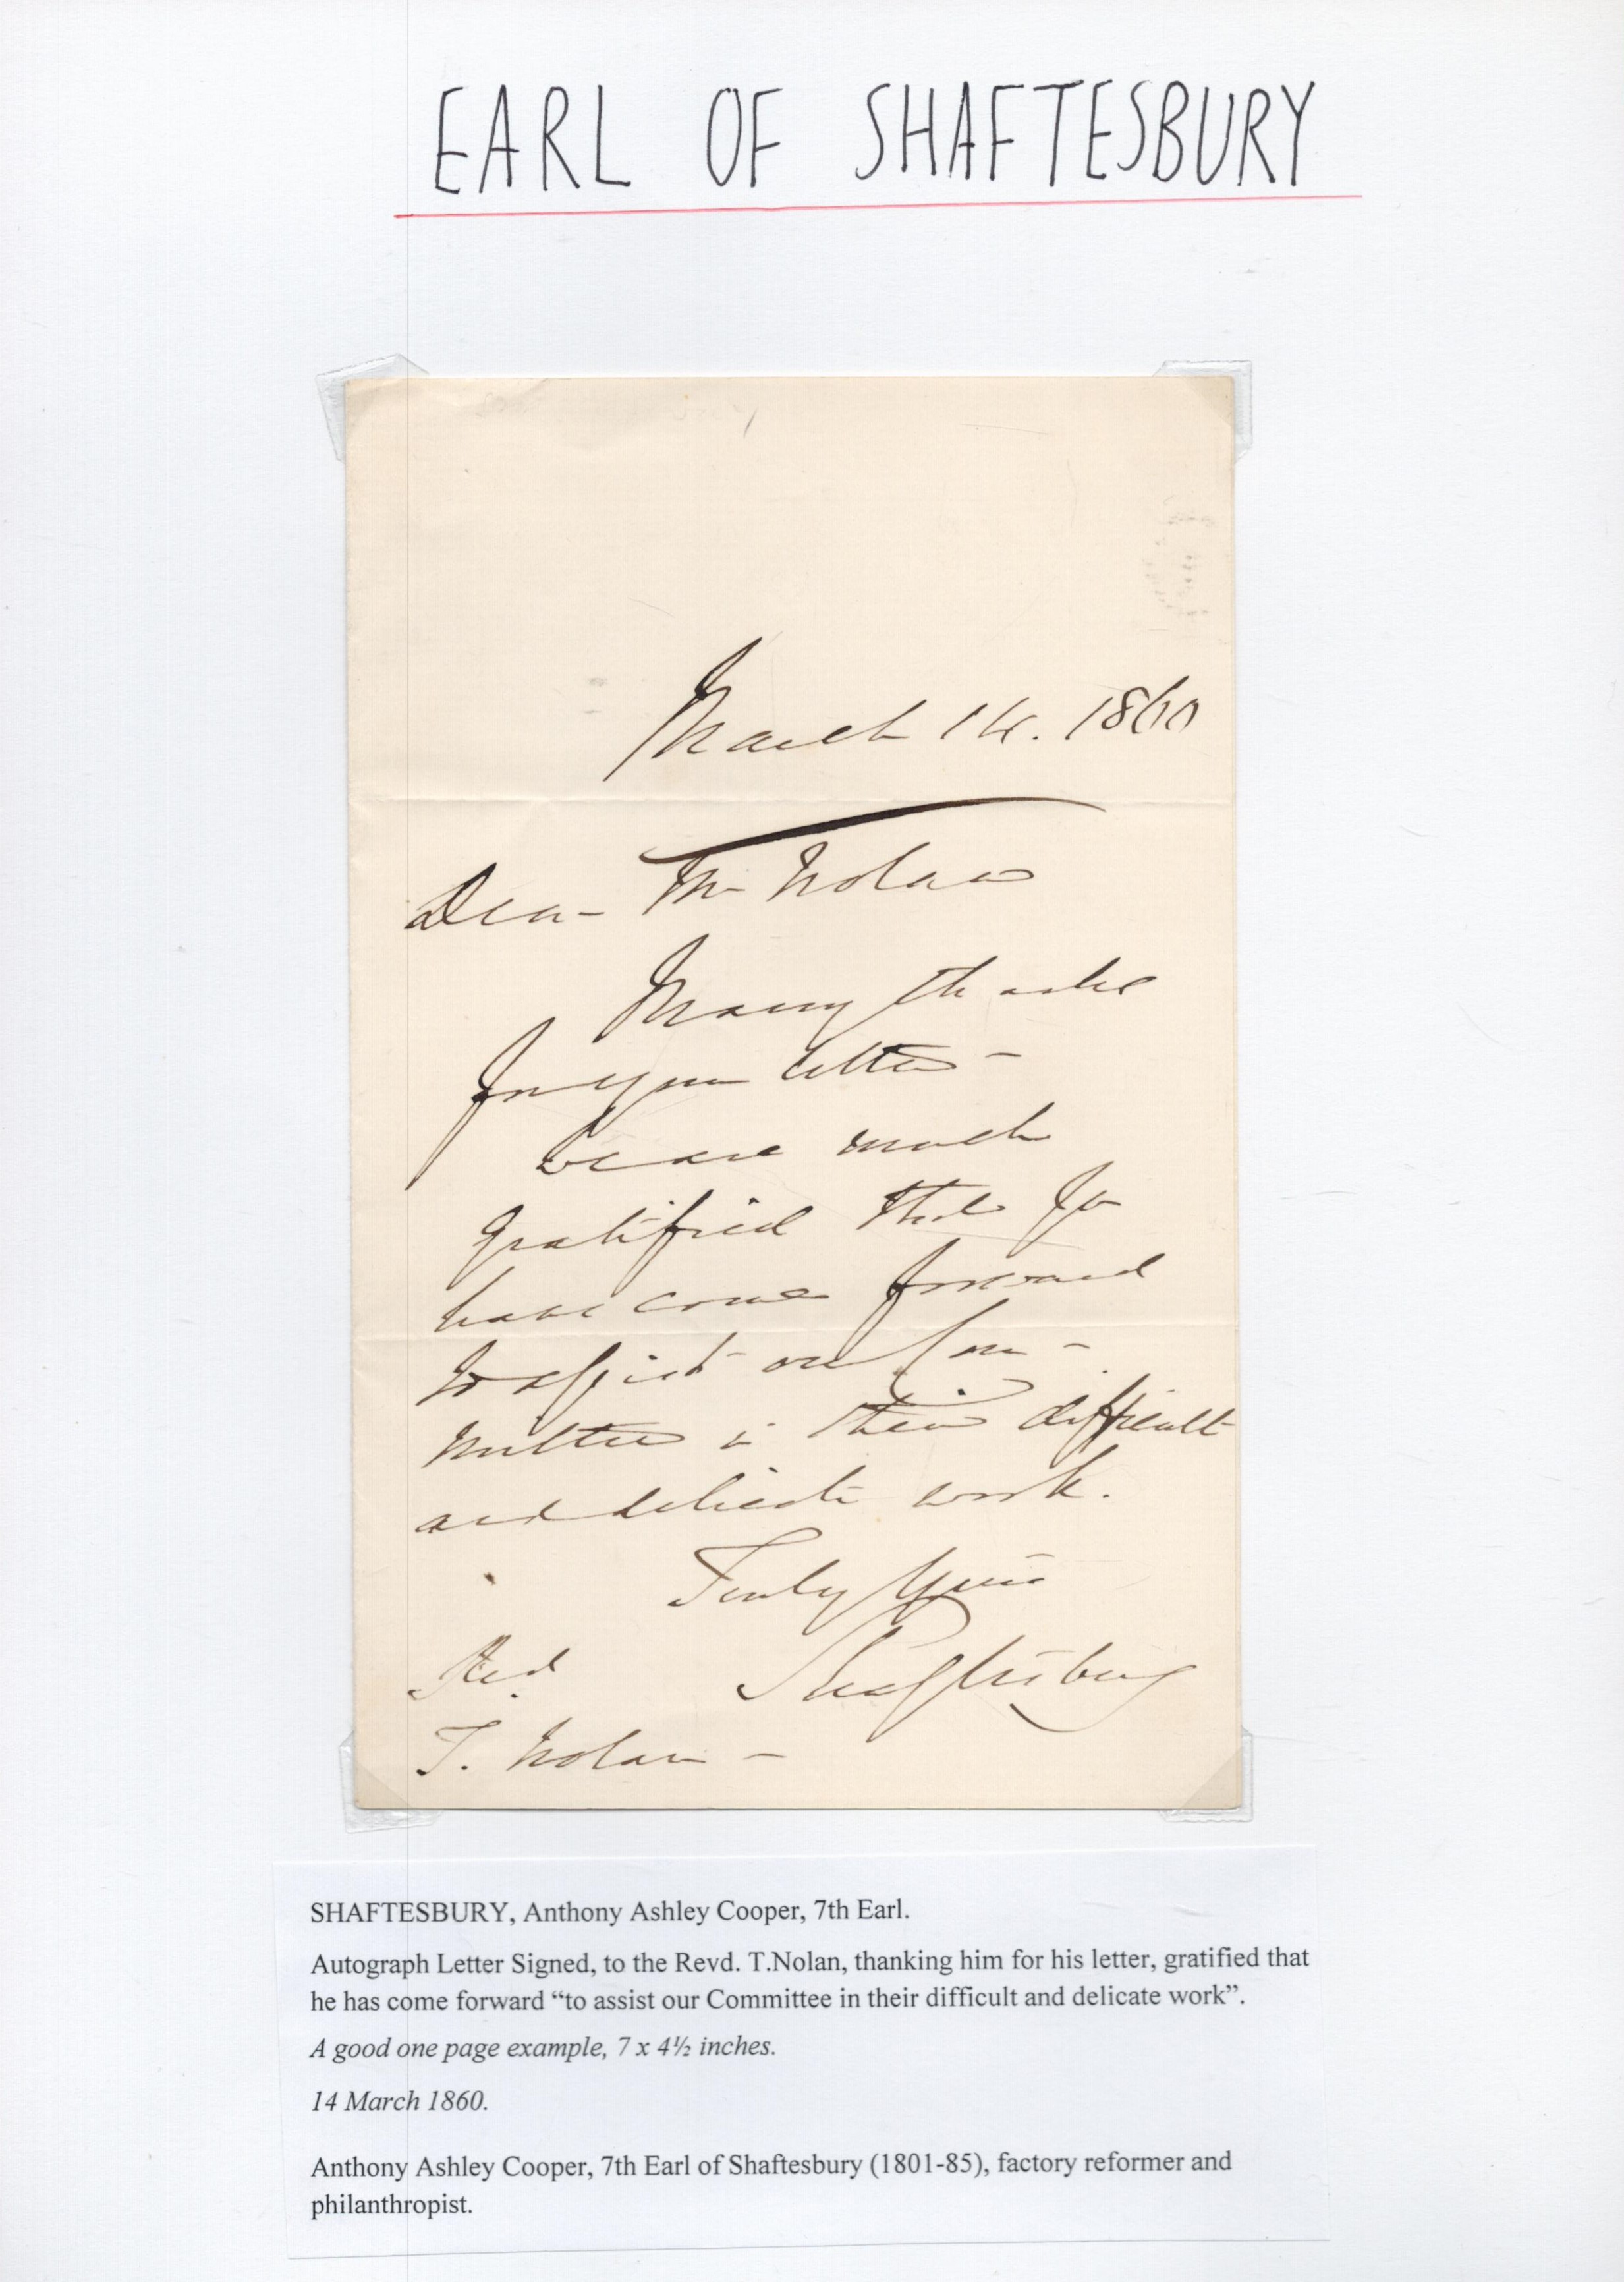 EARL OF SHAFTESBURY
March 14. 1860
Dear Mr Nolan
Many thanks
for your letter -
We are much
gratified that you
have come forward
to assist our Com -
mittee in their difficult
and delicate work.
Truly Yours
Revd Shaftesbury
T. Nolan -
SHAFTESBURY, Anthony Ashley Cooper, 7th Earl.
Autograph Letter Signed, to the Revd. T.Nolan, thanking him for his letter, gratified that
he has come forward “to assist our Committee in their difficult and delicate work”.
A good one page example, 7 x 4½ inches.
14 March 1860.
Anthony Ashley Cooper, 7th Earl of Shaftesbury (1801-85), factory reformer and
philanthropist.